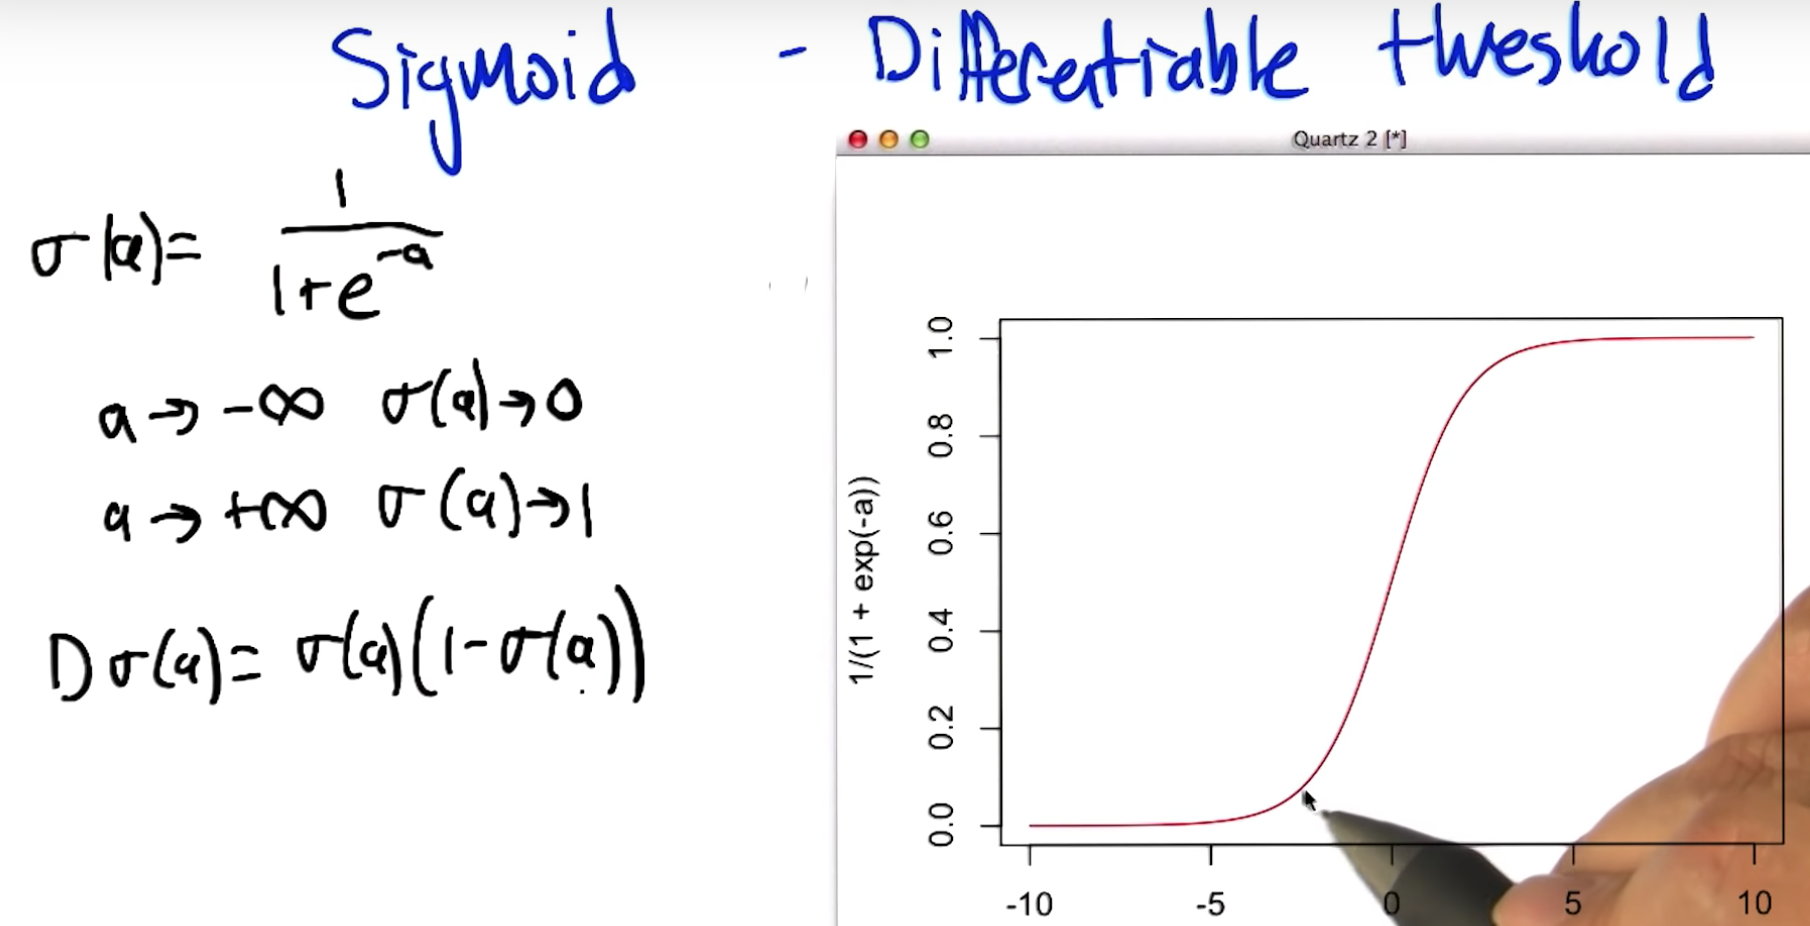 Sigmoid - Differentiable threshold
σ(a)= 1
1+e^-a
a → -∞ σ(a)→0
a → +∞ σ(a)→1
Dσ(a)= σ(a)(1-σ(a))
Quartz 2 [*]
1/(1 + exp(-a))
1.0
0.8
0.6
0.4
0.2
0.0
-10 -5 0 5 10